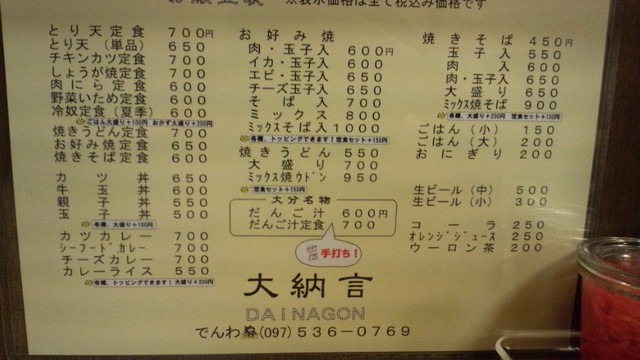 ※表示価格は全て税込み価格です
とり天定食 700円
とり天(単品) 650
チキンカツ定食 700
しょうが焼定食 700
肉にら定食 600
野菜いため定食 600
冷奴定食(夏季) 600
ごはん大盛り+100円 おかず大盛り+200円
焼きうどん定食 700
お好み焼定食 650
焼きそば定食 600
カツ丼 650
牛玉丼 600
親子丼 550
玉子丼 500
各種、大盛り+150円
カツカレー 700
シーフードカレー 700
チーズカレー 700
カレーライス 550
各種、トッピングできます!大盛り+200円
お好み焼
肉・玉子入 600円
イカ・玉子入 600
エビ・玉子入 650
チーズ玉子入 650
そば入 700
ミックス 800
ミックスそば入 1000
各種、トッピングできます! 定食セット+150円
焼きうどん 550
大盛り 700
ミックス焼ウドン 950
定食セット+150円
大分名物
だんご汁 600円
だんご汁定食 700
手打ち!
焼きそば 450円
玉子入 550
肉入 600
肉・玉子入 650
大盛り 650
ミックス焼そば 900
各種、大盛り+200円 定食セット+150円
ごはん(小) 150
ごはん(大) 200
おにぎり 200
生ビール(中) 500
生ビール(小) 300
コーラ 250
オレンジジュース 250
ウーロン茶 200
大納言
DAINAGON
でんわ (097)536-0769